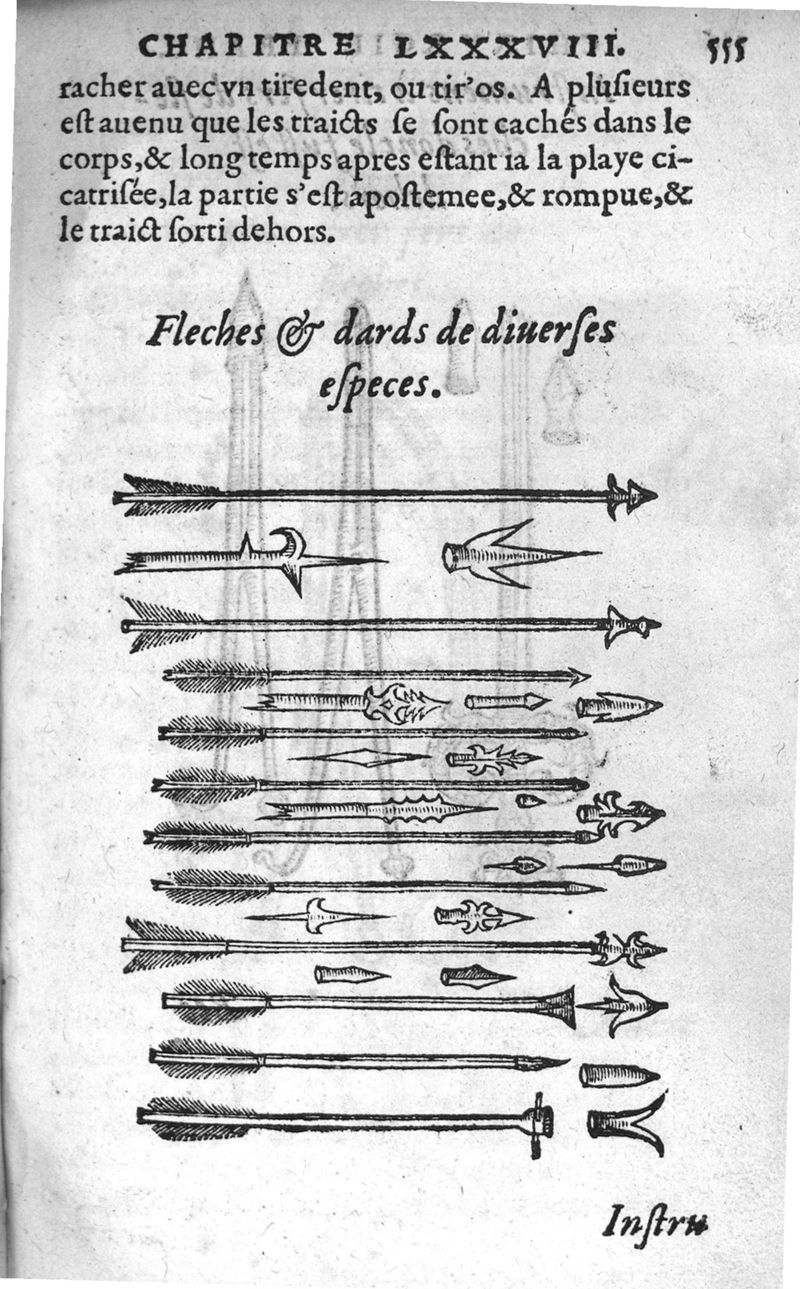 CHAPITRE LXXXVIII. 555
racher auec vn tiredent, ou tir'os. A pluſieurs
eſt auenu que les traicts ſe ſont cachés dans le
corps,& long temps apres eſtant ia la playe ci-
catriſée,la partie s'eſt apoſtemee,& rompue,&
le traict ſorti dehors.
Fleches & dards de diuerſes
eſpeces.
Inſtru